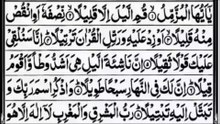 يٰۤاَيُّهَا الْمُزَّمِّلُ ۙ قُمِ الَّيْلَ اِلَّا قَلِيْلًا ۙ نِّصْفَهٗۤ اَوِ انْقُصْ
مِنْهُ قَلِيْلًا ۙ اَوْ زِدْ عَلَيْهِ وَرَتِّلِ الْقُرْاٰنَ تَرْتِيْلًا ؕ اِنَّا سَنُلْقِيْ
عَلَيْكَ قَوْلًا ثَقِيْلًا ۞ اِنَّ نَاشِئَةَ الَّيْلِ هِيَ اَشَدُّ وَطْاً وَّاَقْوَمُ
قِيْلًا ؕ اِنَّ لَكَ فِي النَّهَارِ سَبْحًا طَوِيْلًا ؕ وَاذْكُرِ اسْمَ رَبِّكَ وَ
تَبَتَّلْ اِلَيْهِ تَبْتِيْلًا ؕ رَبُّ الْمَشْرِقِ وَالْمَغْرِبِ لَاۤ اِلٰهَ اِلَّا هُوَ